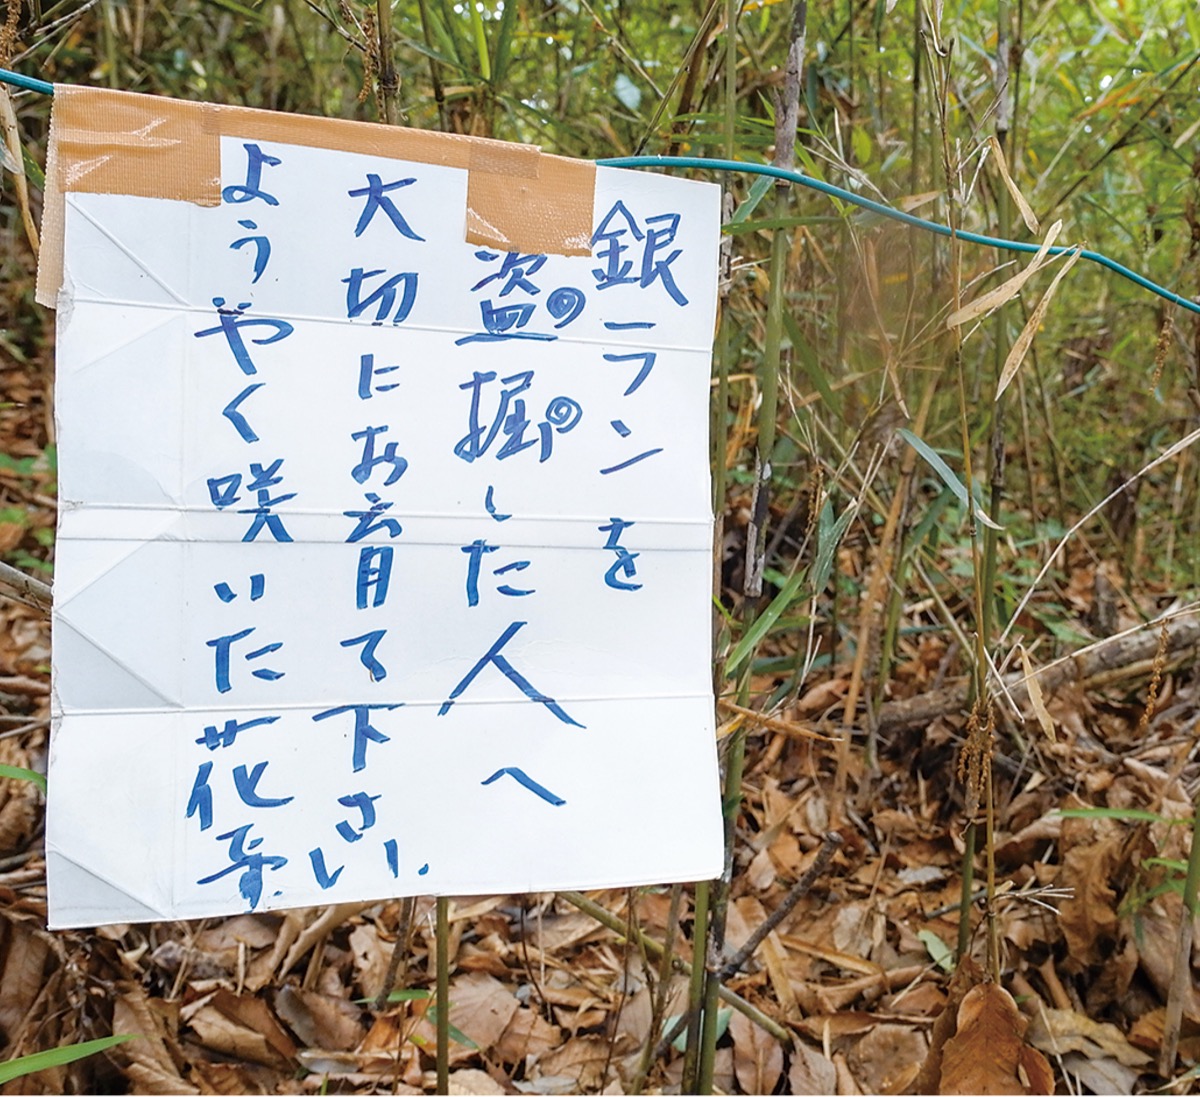 銀ランを
盗掘した人へ
大切にお育て下さい.
ようやく咲いた花です.